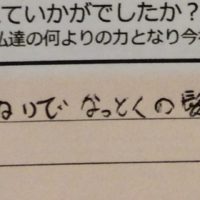 ていかがでしたか？
私達の何よりの力となり今
なりで なっとくの髪